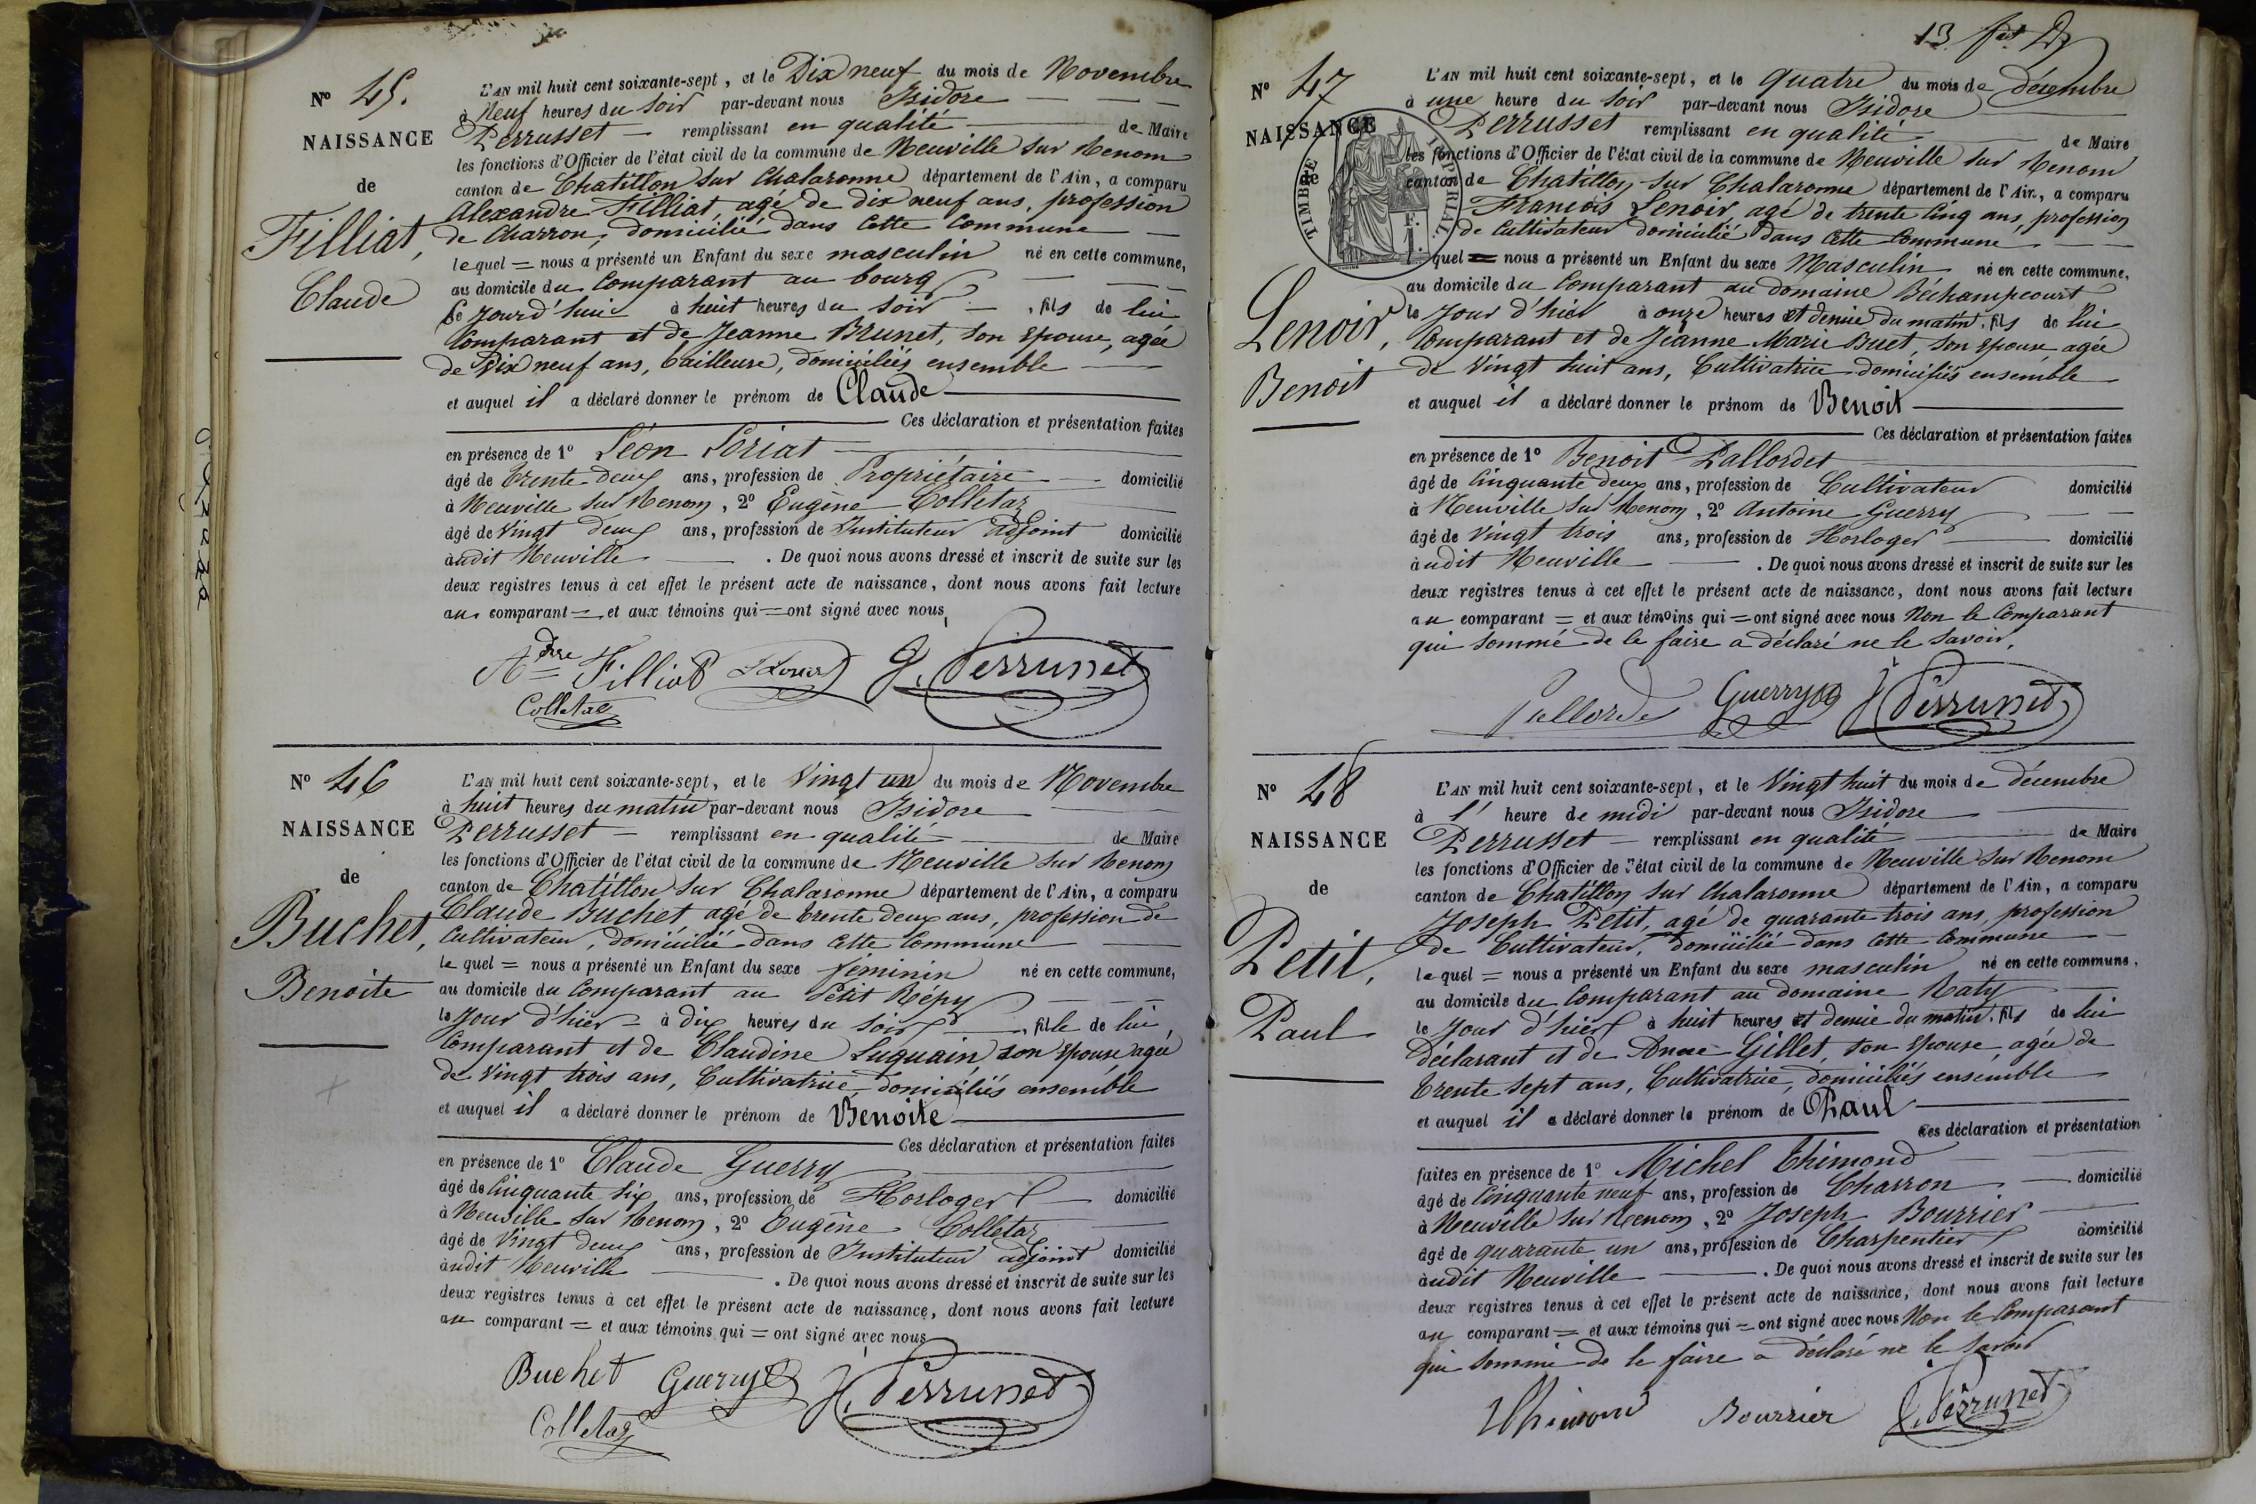 N° 45.
NAISSANCE
de
Filliat,
Claude
L'AN mil huit cent soixante-sept, et le Dix neuf du mois de Novembre
à Neuf heures du soir par-devant nous Isidore
Perrusset remplissant en qualité de Maire
les fonctions d'Officier de l'état civil de la commune de Neuville sur Renom
canton de Chatillon sur Chalaronne département de l'Ain, a comparu
Alexandre Filliat, agé de dix neuf ans, profession
de Charron, domicilié dans cette Commune
lequel = nous a présenté un Enfant du sexe masculin né en cette commune,
au domicile du Comparant au bourg
Ce jourd'hui à huit heures du soir , fils de lui
Comparant et de Jeanne Brunet, son épouse, agée
de Dix neuf ans, tailleuse, domiciliés ensemble
et auquel il a déclaré donner le prénom de Claude
Ces déclaration et présentation faites
en présence de 1° Léon Loriat
âgé de trente deux ans, profession de Propriétaire domicilié
à Neuville sur Renom, 2° Eugène Colletaz
âgé de vingt deux ans, profession de Instituteur adjoint domicilié
audit Neuville . De quoi nous avons dressé et inscrit de suite sur les
deux registres tenus à cet effet le présent acte de naissance, dont nous avons fait lecture
au comparant = et aux témoins qui = ont signé avec nous,
Adre Filliat J. Perrusset
Colletaz
N° 46
NAISSANCE
de
Buchet,
Benoite
L'AN mil huit cent soixante-sept, et le Vingt un du mois de Novembre
à huit heures du matin par-devant nous Isidore
Perrusset remplissant en qualité de Maire
les fonctions d'Officier de l'état civil de la commune de Neuville sur Renom
canton de Chatillon sur Chalaronne département de l'Ain, a comparu
Claude Buchet agé de trente deux ans, profession de
Cultivateur, domicilié dans cette Commune
le quel = nous a présenté un Enfant du sexe féminin né en cette commune,
au domicile du Comparant au Petit Répy
le Jour d'hier à dix heures du soir , fille de lui,
Comparant et de Claudine Luquain, son épouse agée
de vingt trois ans, Cultivatrice, domiciliés ensemble
et auquel il a déclaré donner le prénom de Benoite
Ces déclaration et présentation faites
en présence de 1° Claude Guerry
âgé de Cinquante six ans, profession de Horloger domicilié
à Neuville sur Renom, 2° Eugène Colletaz
âgé de Vingt deux ans, profession de Instituteur adjoint domicilié
audit Neuville . De quoi nous avons dressé et inscrit de suite sur les
deux registres tenus à cet effet le présent acte de naissance, dont nous avons fait lecture
au comparant = et aux témoins qui = ont signé avec nous,
Buchet Guerry J. Perrusset
Colletaz
13
N° 47
NAISSANCE
de
TIMBRE IMPERIAL
F.
1.
Lenoir,
Benoit
L'AN mil huit cent soixante-sept, et le quatre du mois de décembre
à une heure du soir par-devant nous Isidore
Perrusset remplissant en qualité de Maire
les fonctions d'Officier de l'état civil de la commune de Neuville sur Renom
canton de Chatillon sur Chalaronne département de l'Ain, a comparu
François Lenoir, agé de trente cinq ans, profession
de Cultivateur domicilié dans cette Commune
quel = nous a présenté un Enfant du sexe Masculin né en cette commune,
au domicile du Comparant au domaine Béchampcourt
le Jour d'hier à onze heures et demie du matin, fils de lui
Comparant et de Jeanne Marie Buet, son épouse, agée
de Vingt huit ans, Cultivatrice domiciliés ensemble
et auquel il a déclaré donner le prénom de Benoit
Ces déclaration et présentation faites
en présence de 1° Benoit Pallordet
âgé de Cinquante deux ans, profession de Cultivateur domicilié
à Neuville sur Renom, 2° Antoine Guerry
âgé de vingt trois ans, profession de Horloger domicilié
audit Neuville . De quoi nous avons dressé et inscrit de suite sur les
deux registres tenus à cet effet le présent acte de naissance, dont nous avons fait lecture
au comparant = et aux témoins qui = ont signé avec nous Non le Comparant
qui sommé de le faire a déclaré ne le savoir.
Guerry J. Perrusset
N° 48
NAISSANCE
de
Petit,
Paul
L'AN mil huit cent soixante-sept, et le Vingt huit du mois de décembre
à l' heure de midi par-devant nous Isidore
Perrusset remplissant en qualité de Maire
les fonctions d'Officier de l'état civil de la commune de Neuville sur Renom
canton de Chatillon sur Chalaronne département de l'Ain, a comparu
Joseph Petit, agé de quarante trois ans, profession
de Cultivateur, domicilié dans cette Commune
lequel = nous a présenté un Enfant du sexe masculin né en cette commune,
au domicile du Comparant au domaine Raty
le Jour d'hier à huit heures et demie du matin, fils de lui
déclarant et de Anne Gillet, son épouse, agée de
trente sept ans, Cultivatrice, domiciliés ensemble
et auquel il a déclaré donner le prénom de Paul
Ces déclaration et présentation
faites en présence de 1° Michel Thimond
âgé de Cinquante neuf ans, profession de Charron domicilié
à Neuville sur Renom, 2° Joseph Bourrier
âgé de quarante un ans, profession de Charpentier domicilié
audit Neuville . De quoi nous avons dressé et inscrit de suite sur les
deux registres tenus à cet effet le présent acte de naissance, dont nous avons fait lecture
au comparant = et aux témoins qui = ont signé avec nous Non le Comparant
qui sommé de le faire a déclaré ne le savoir
Thimond Bourrier J. Perrusset